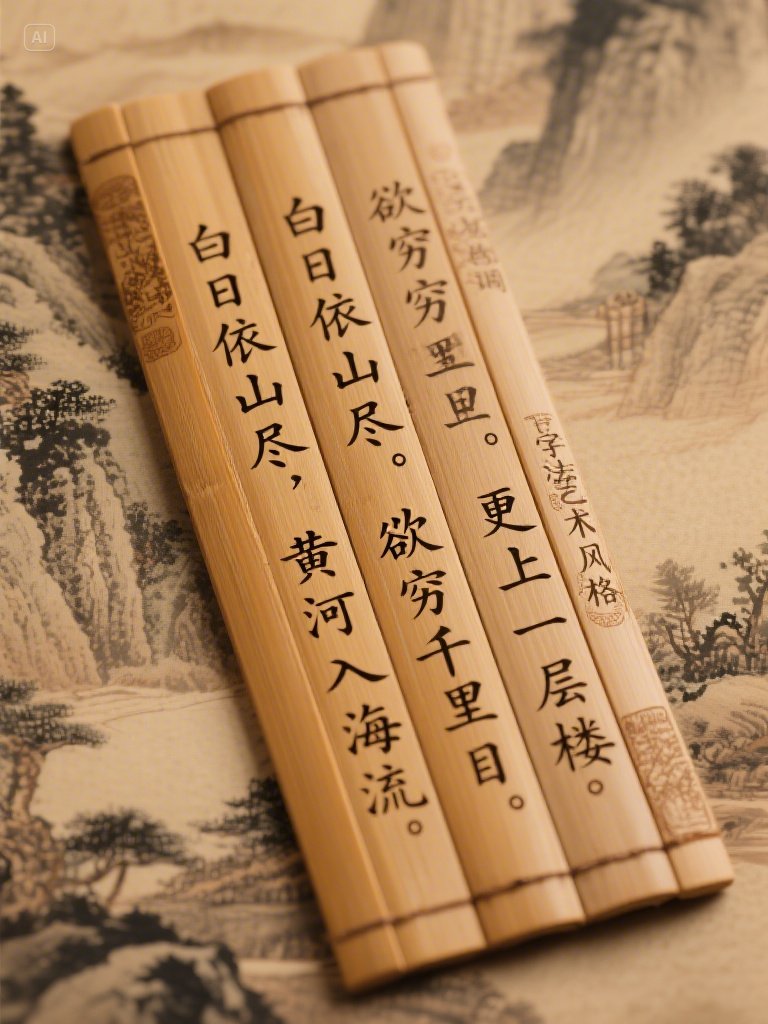 AI
白日依山尽，黄河入海流。
白日依山尽。欲穷千里目。
欲穷穷里里。更上一层楼。
字法艺术风格